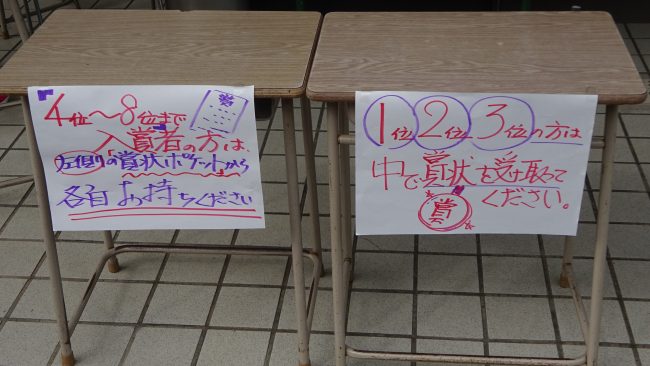 賞
4位～8位まで
入賞者の方は、
左側の賞状ポケットから
各自お持ちください
1位2位3位の方は
中で賞状を受け取って
ください。
賞